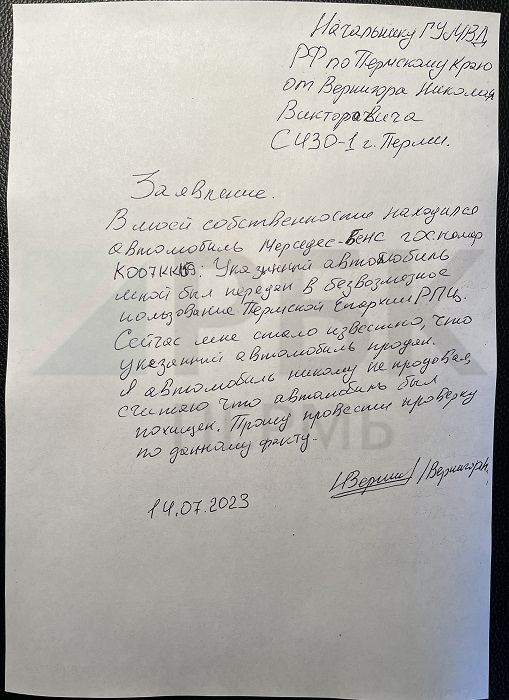 Начальнику ГУМВД
РФ по Пермскому краю
от Вернигора Николая
Викторовича
СИЗО-1 г. Перми.
Заявление.
В моей собственности находился
автомобиль Мерседес-Бенс госномер
К007КК59. Указанний автомобиль
мной был передан в безвозмозное
пользование Пермской Епархии РПЦ.
Сейчас мне стало известно, что
указанний автомобиль продан.
Я автомобиль никому не продовал,
считаю что автомобиль был
похищен. Прошу провести проверку
по данному факту.
14.07.2023
РБК
ПЕРМЬ